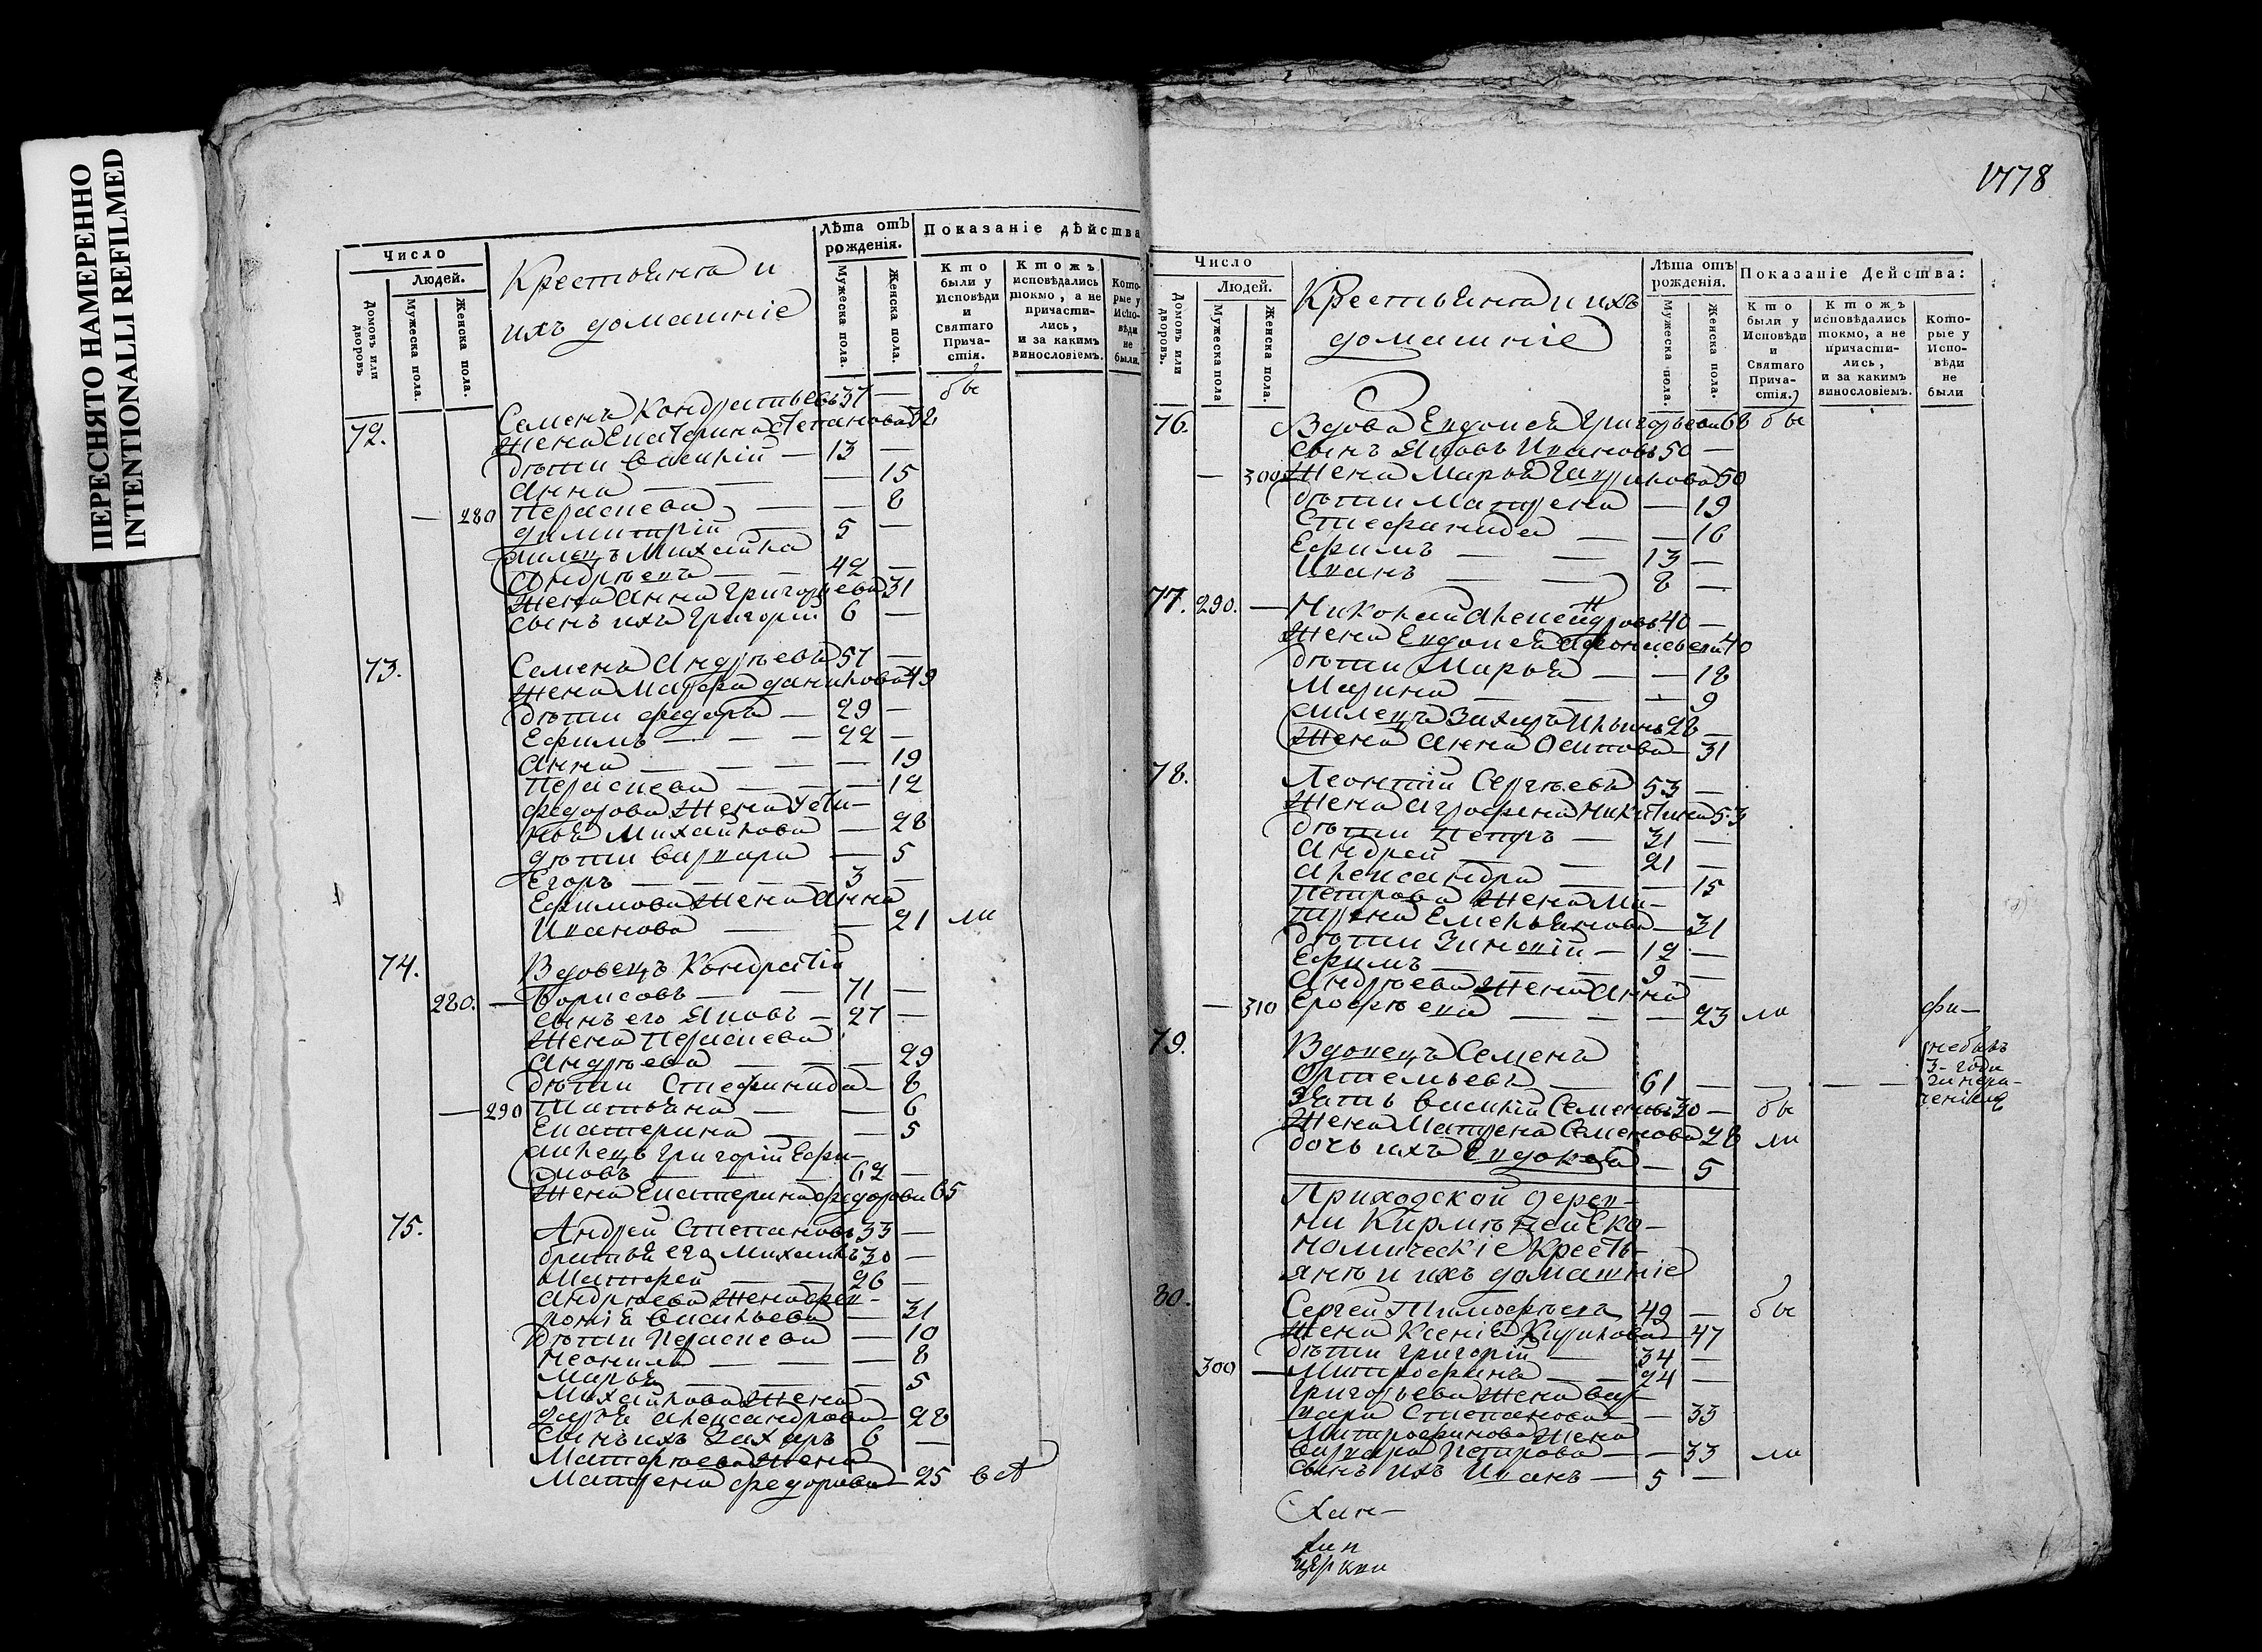 ПЕРЕСНЯТО НАМЕРЕННО
INTENTIONALLI REFILMED
Число
Людей.
Домовъ или дворовъ
Мужеска пола.
Женска пола.
Крестьянѣ и
ихъ домашніе
Лѣта отъ рожденія.
Мужеска пола.
Женска пола.
Показаніе дѣйства
Кто были у Исповѣди и Святаго Причастія.
Ктожъ исповѣдались токмо, а не причастились, и за какимъ винословіемъ.
Которые у Исповѣди не были.
72. Семенъ Кондратьевъ 37 — бы
жена Екатерина Степанова 32
дѣти Василій — 13 —
Анна — — — 15
— 280 Параскева — — 8
Димитрій — 5 —
Михайла
Андрѣевъ — — 42 —
жена Анна Григорьева 31
сынъ ихъ Григорій 6 —
73. Семенъ Андрѣевъ 57 —
жена Марфа Данилова 49
дѣти Федоръ — 29 —
Ефимъ — — — 22 —
Анна — — — — 19
Параскева — — — 12
Федорова жена Усти-
нья Михайлова — 28
дѣти Варвара — 5
Егоръ — — — — 3 —
Ефимова жена Анна
Иванова — — 21 ли
74. Вдовецъ Кондратій
280. — Борисовъ — — 71 —
сынъ его Яковъ — 27 —
жена Параскева
Андрѣева — — 29
дѣти Стефанида — 8
— 290 Татьяна — — 6
Екатерина — — 5
Григорій Ефи-
мовъ — — — 62 —
жена Екатерина Федорова 65
75. Андрей Степановъ 33 —
братья его Михаилъ 30 —
Матфей — — 26 —
Андрѣева жена Фев-
ронія Васильева — 31
дѣти Параскева — 10
Неонила — — — 8
Марья — — — — 5
Михайлова жена
Дарья Александрова — 28
сынъ ихъ Захаръ 6 —
Матфѣева жена
Матрена Федорова — 25
1778
Число
Людей.
Домовъ или дворовъ.
Мужеска пола
Женска пола.
Крестьянѣ и ихъ
домашніе
Лѣта отъ рожденія.
Мужеска пола.
Женска пола.
Показаніе Действа:
Кто были у Исповѣди и Святаго Причастія.
Ктожъ исповѣдались токмо, а не причастились, и за какимъ винословіемъ.
Которые у Исповѣди не были
76. Вдова Евдокея Григорьева 68 бы
сынъ Яковъ Ивановъ 50 —
— 300 жена Марья Гаврилова 50
дѣти Матрена — 19
Стефанида — — 16
Ефимъ — — 13 —
Иванъ — — 8 —
77. 290. — Николай 40 —
жена Евдокея 40
дѣти Марья — — 18
Марина — — — 9
Захаръ Ильинъ 28 —
жена Анна Осипова — 31
78. Леонтій Сергѣевъ 53 —
жена Аграфена Никитина 53
дѣти Петръ — 31 —
Андрей — — 21 —
Александра — — 15
Петрова жена Ма-
трена Емельянова — 31
дѣти Зиновій — 12 —
Ефимъ — — — 9 —
Андрѣева жена Анна
— 310 Ерофѣева — — — 23 ли
79. Вдовецъ Семенъ
Артемьевъ — 61 — — — небылъ
3 года
Зять Василій Семеновъ 30 — бы
жена Матрена Семенова 28 ли
дочь ихъ Евдокея — 5
Приходской дерев-
ни Еко-
номическіе кресть-
янѣ и ихъ домашніе
80. Сергей Тимофѣевъ 49 — бы
жена Ксенія Кирилова — 47
дѣти Григорій — 34 —
300 — Митрофанъ — — 24 —
Григорьева жена Вар-
вара Степанова — — 33
Митрофанова жена
Варвара Петрова — — 33 ли
сынъ ихъ Иванъ — 5 —
церкви